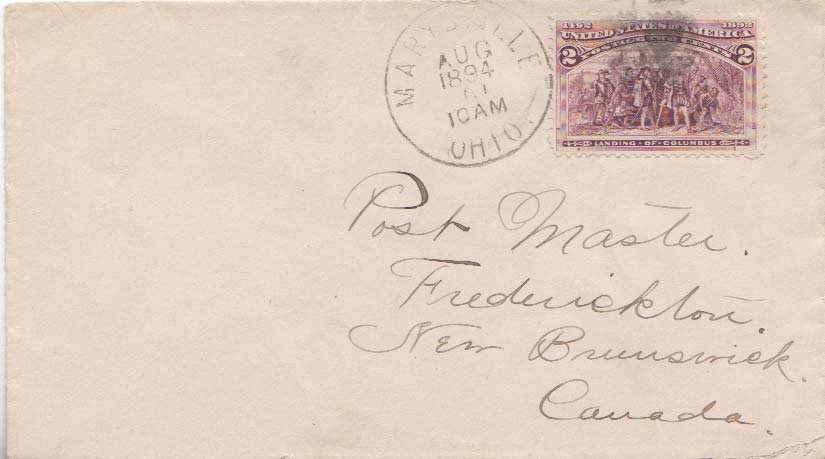 MARYSVILLE
AUG
1894
10AM
OHIO.
1492 1892
UNITED STATES OF AMERICA
2 POSTAGE TWO CENTS 2
LANDING · OF · COLUMBUS
Post Master.
Frederickton.
New Brunswick.
Canada.